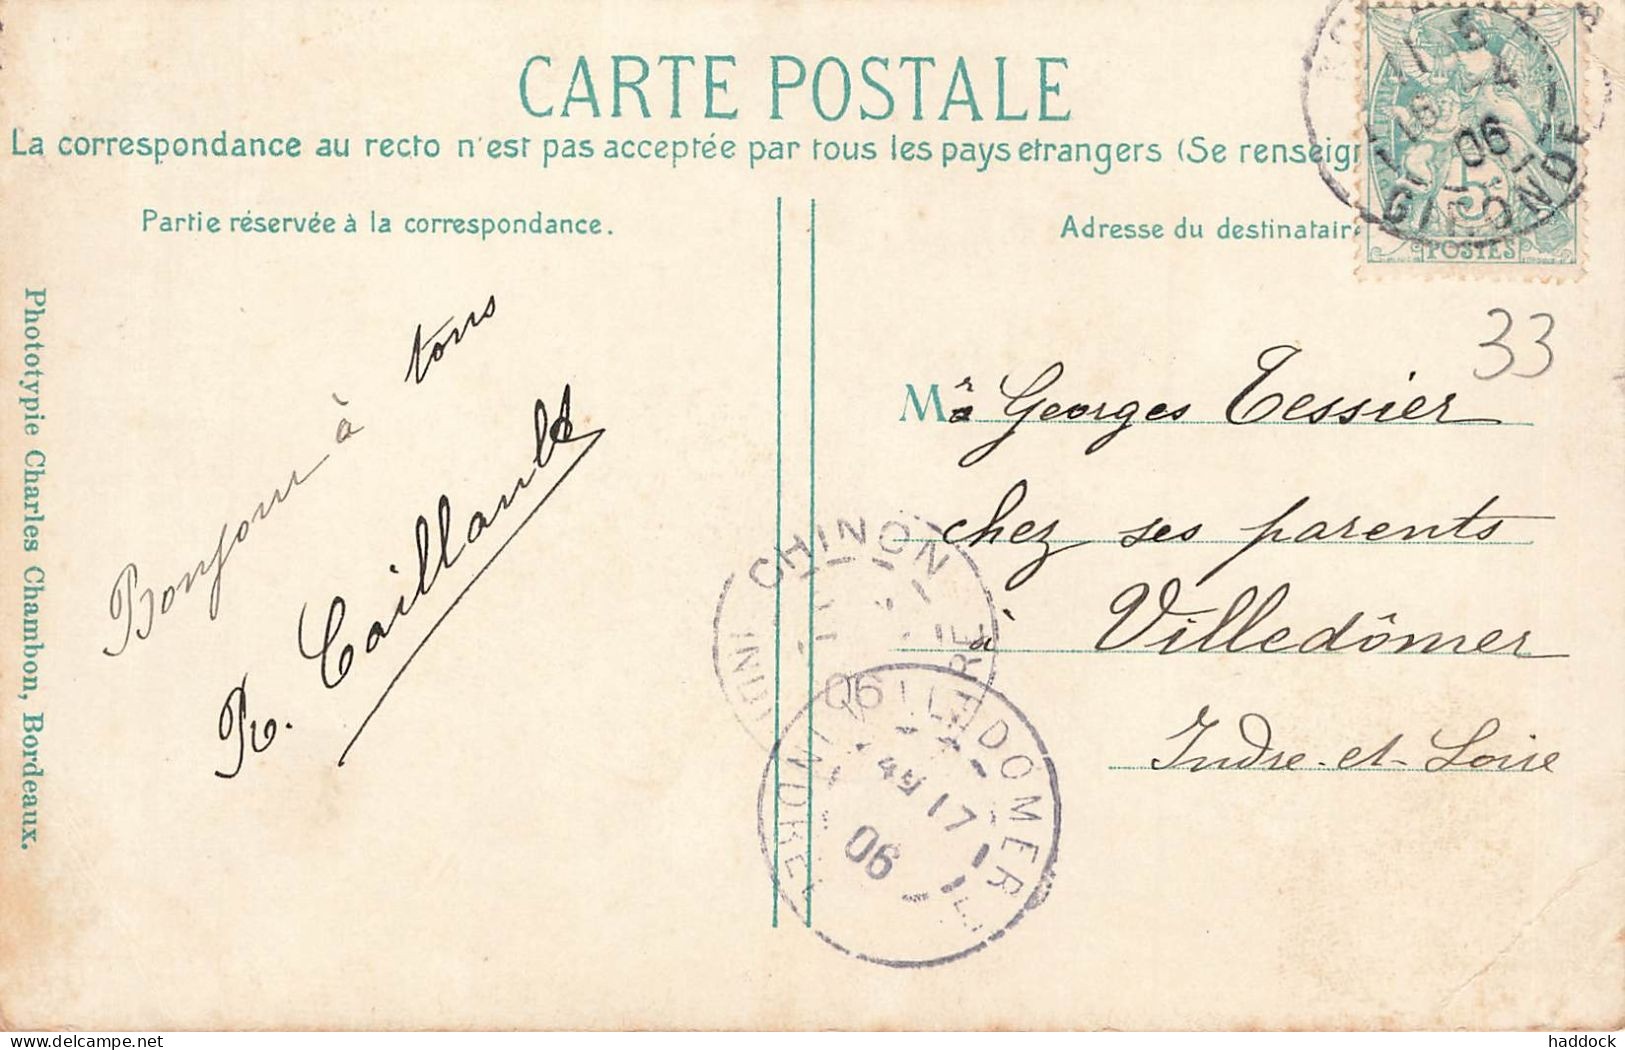 CARTE POSTALE
La correspondance au recto n'est pas acceptée par tous les pays etrangers (Se renseign
Partie réservée à la correspondance.
Adresse du destinataire
Bonjour à tous
R. Caillault
Photorypie Charles Chambon, Bordeaux.
33
Mr Georges Tessier
chez ses parents
à Villedômer
Indre-et-Loire
GIRONDE
06
5
POSTES
CHINON
INDRE
06
VILLEDOMER
17
06
delcampe.net
haddock